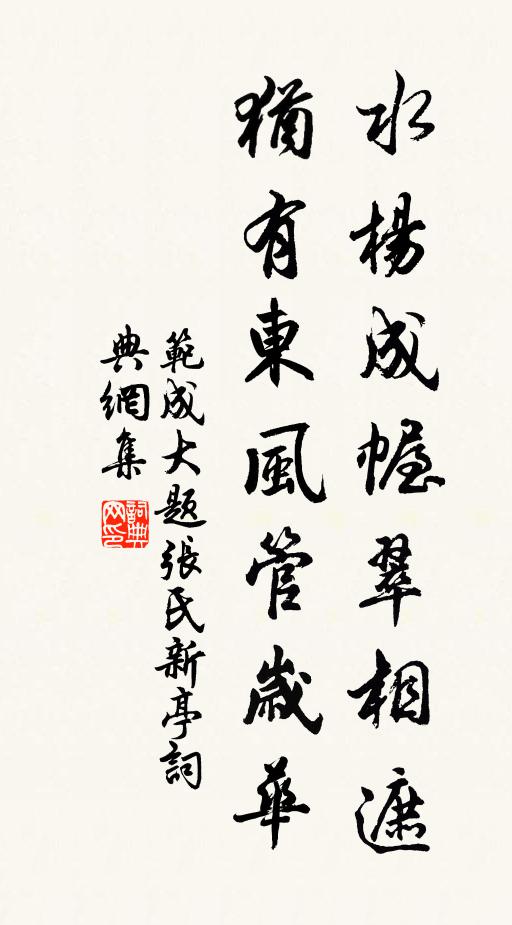 水楊成幄翠相遮
猶有東風管歲華
範成大题張氏新亭詞
典網集
詞典网印